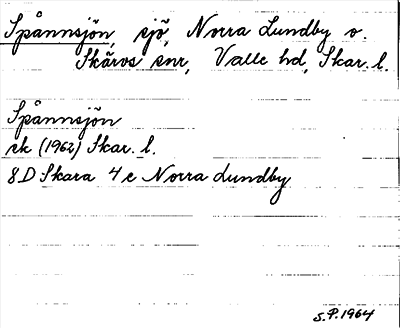 Spånnsjön, sjö, Norra Lundby o.
Skärvs snr, Valle hd, Skar. l.
Spånnsjön
ek (1962) Skar. l.
8D Skara 4e Norra Lundby
S.P. 1964